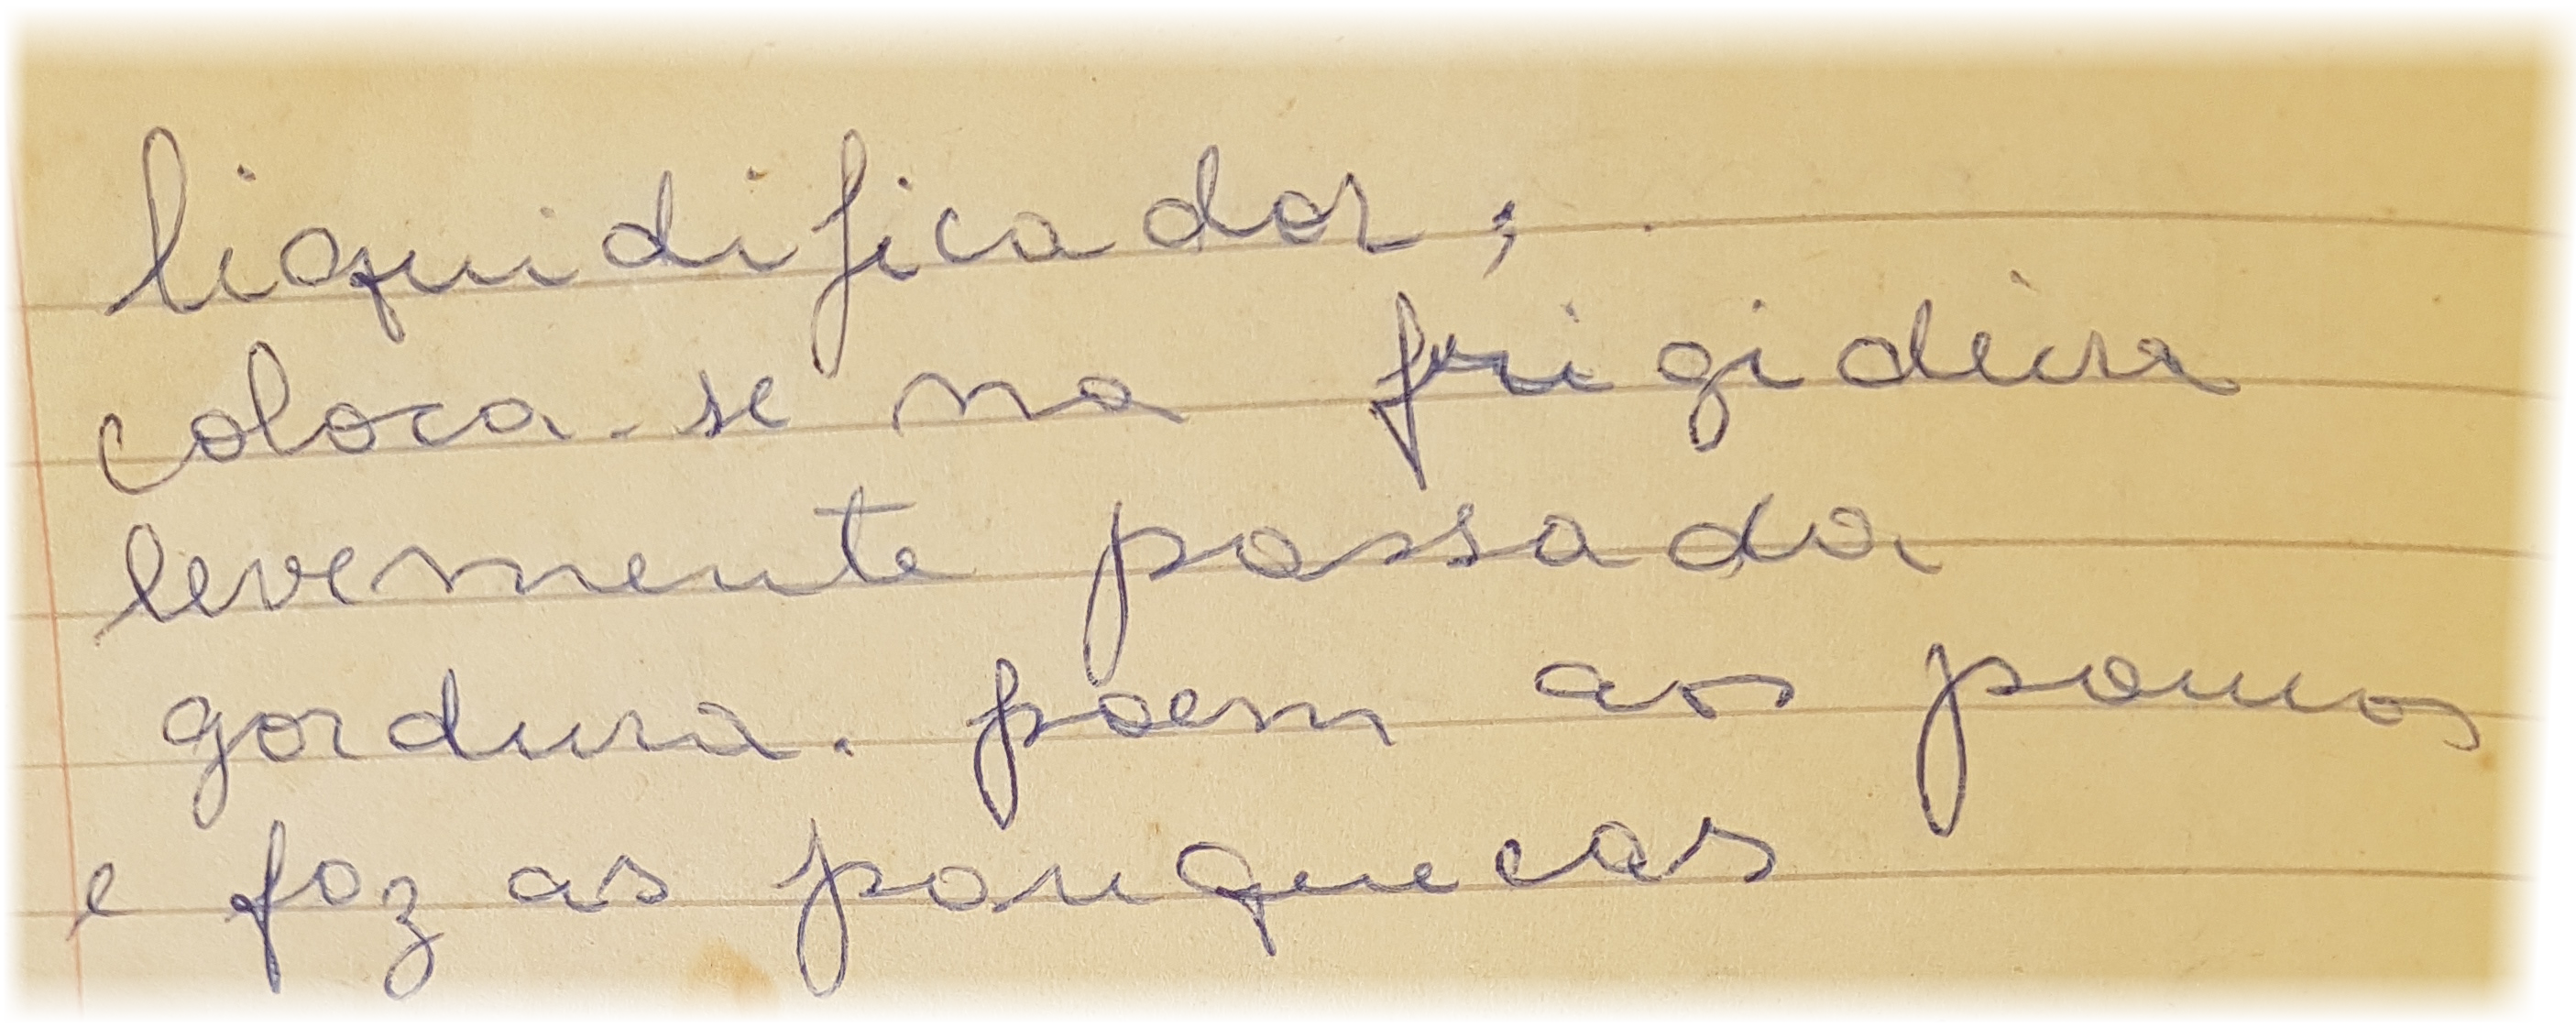 liquidificador;
coloca-se na frigideira
levemente passada
gordura. poem aos poucos
e faz as panquecas